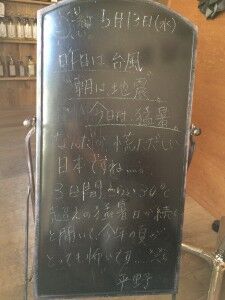 5月13日(水)
昨日は 台風
朝は 地震。
今日は、猛暑。
なんだか 慌ただしい
日本ですね……
3日間 くらい 30℃
超えの猛暑日が続く
と聞いて、今年の夏が
とっても怖いです……